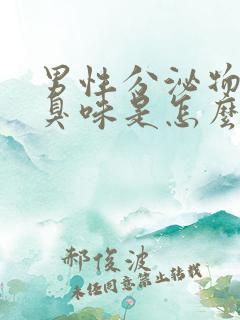 男性分泌物
臭味是怎麼
郝俊波
未经同意禁止转载